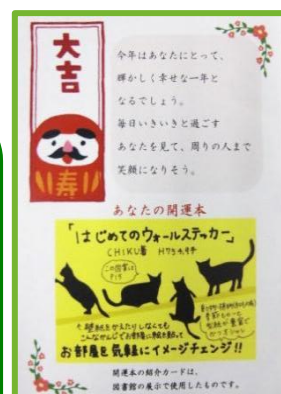 大吉
寿
今年はあなたにとって、
輝かしく幸せな一年と
なるでしょう。
毎日いきいきと過ごす
あなたを見て、周りの人まで
笑顔になりそう。
あなたの開運本
「はじめてのウォールステッカー」
CHIKU著
この図案は
壁紙をかえたりしなくても
こんなかんじでお部屋に
お部屋を気軽にイメージチェンジ!!
開運本の紹介カードは、
図書館の展示で使用したものです。